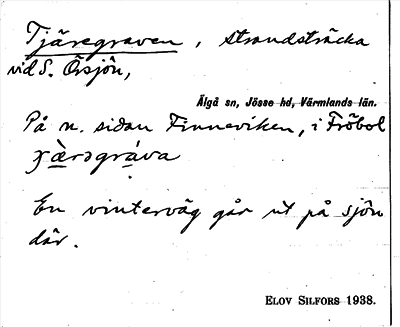 Tjäregraven, strandsträcka
vid S. Örsjön,
Älgå sn, Jösse hd, Värmlands län.
På n. sidan Finneviken, i Fröbol
En vinterväg går ut på sjön
där.
ELOV SILFORS 1938.